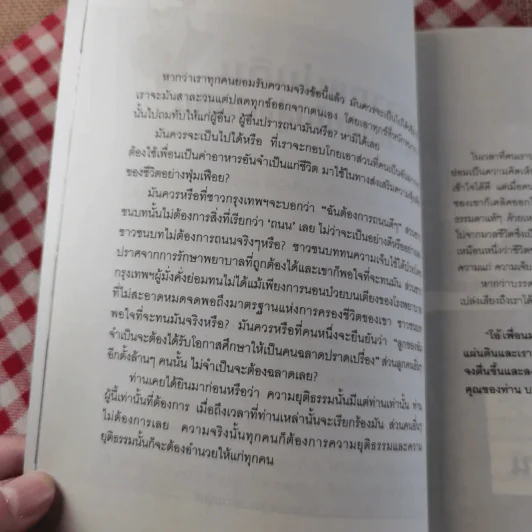 หากว่าเราทุกคนยอมรับความจริงข้อนี้แล้ว มันควรจะเป็นไปได้
เราจะมันสาละวนแต่ปลดทุกข์ออกจากตนเอง โดยเอาทุกข์ที่หนัก
นั้นไปถมทับให้แก่ผู้อื่น? ผู้อื่นปรารถนามันหรือ? หามิได้เลย
มันควรจะเป็นไปได้หรือ ที่เราจะกอบโกยเอาส่วนที่คนเป็น
ต้องใช้เพื่อนเป็นค่าอาหารอันจำเป็นแก่ชีวิต มาใช้ในทางส่งเสริมความ
ของชีวิตอย่างฟุ่มเฟือย?
มันควรหรือที่ชาวกรุงเทพฯจะบอกว่า "ฉันต้องการถนนดีๆ"
ชนบทนั้นไม่ต้องการสิ่งที่เรียกว่า 'ถนน' เลย ไม่ว่าจะเป็นอย่างดีหรืออย่าง
ชาวชนบทไม่ต้องการถนนจริงๆหรือ? ชาวชนบททนความเจ็บไข้ได้ป่วยโดย
ปราศจากการรักษาพยาบาลที่ถูกต้องได้และเขาก็พอใจที่จะทนมัน ส่วนชาว
กรุงเทพฯผู้มั่งคั่งย่อมทนไม่ได้แม้เพียงการนอนป่วยบนเตียงของโรงพยาบาล
ที่ไม่สะอาดหมดจดพอถึงมาตรฐานแห่งการครองชีวิตของเขา ชาวชนบท
พอใจที่จะทนมันจริงหรือ? มันควรหรือที่คนหนึ่งจะยืนยันว่า "ลูกของฉัน
จำเป็นจะต้องได้รับโอกาสศึกษาให้เป็นคนฉลาดปราดเปรื่อง" ส่วนลูกคนอื่นๆ
อีกตั้งล้านๆ คนนั้น ไม่จำเป็นจะต้องฉลาดเลย?
ท่านเคยได้ยินมาก่อนหรือว่า ความยุติธรรมนั้นมีแต่ท่านเท่านั้น ท่าน
ผู้นี้เท่านั้นที่ต้องการ เมื่อถึงเวลาที่ท่านเหล่านั้นจะเรียกร้องมัน ส่วนคนอื่นๆ
ไม่ต้องการเลย ความจริงนั้นทุกคนก็ต้องการความยุติธรรมและความ
ยุติธรรมนั้นก็จะต้องอำนวยให้แก่ทุกคน
ในเวลาที่คน
ย่อมเป็นความคิดเห็น
เข้าใจได้ดี แต่เมื่อ
ของเขาก็เตลิดออก
ธรรมดาแท้ๆ ด้วยเหตุ
ไม่จากมวลชีวิตซึ่งเป็น
เหมือนหนึ่งว่าชีวิต
ความแก่ ความเจ็บ
หากว่าบรรดา
เปล่งเสียงถึงเราได้
"โอ้เพื่อนม
แผ่นดินและเรา
จงตื่นขึ้นและ
คุณของท่าน บ